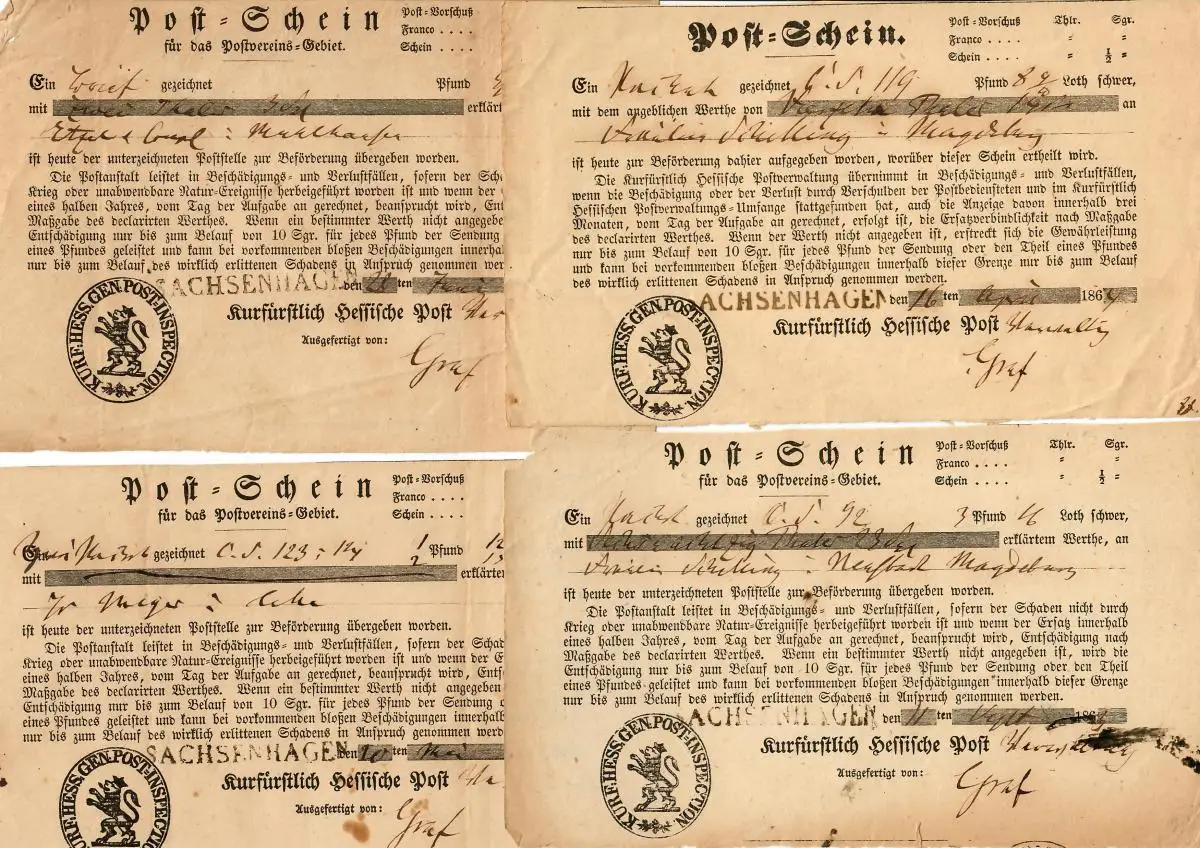 Post-Schein
für das Postvereins-Gebiet.
Post-Vorschuß
Franco . . . .
Schein . . . .
Ein Brief gezeichnet Pfund
mit Zwei Thaler erklärt
ist heute der unterzeichneten Poststelle zur Beförderung übergeben worden.
Die Postanstalt leistet in Beschädigungs- und Verlustfällen, sofern der Sch
Krieg oder unabwendbare Natur-Ereignisse herbeigeführt worden ist und wenn der
eines halben Jahres, vom Tag der Aufgabe an gerechnet, beansprucht wird, Ent
Maßgabe des declarirten Werthes. Wenn ein bestimmter Werth nicht angegebe
Entschädigung nur bis zum Belauf von 10 Sgr. für jedes Pfund der Sendung
eines Pfundes geleistet und kann bei vorkommenden bloßen Beschädigungen innerhal
nur bis zum Belauf des wirklich erlittenen Schadens in Anspruch genommen wer
SACHSENHAGEN den ten Juni
Kurfürstlich Hessische Post
Ausgefertigt von:
Graf
KURF. HESS. GEN. POST-INSPECTION.
Post-Schein.
Post-Vorschuß Thlr. Sgr.
Franco . . . . " "
Schein . . . . " ½ "
Ein Packet gezeichnet C. S. 119 Pfund Loth schwer,
mit dem angeblichen Werthe von Thaler an
Fräulein Schilling in Magdeburg
ist heute zur Beförderung dahier aufgegeben worden, worüber dieser Schein ertheilt wird.
Die Kurfürstlich Hessische Postverwaltung übernimmt in Beschädigungs- und Verlustfällen,
wenn die Beschädigung oder der Verlust durch Verschulden der Postbediensteten und im Kurfürstlich
Hessischen Postverwaltungs-Umfange stattgefunden hat, auch die Anzeige davon innerhalb drei
Monaten, vom Tag der Aufgabe an gerechnet, erfolgt ist, die Ersatzverbindlichkeit nach Maßgabe
des declarirten Werthes. Wenn der Werth nicht angegeben ist, erstreckt sich die Gewährleistung
nur bis zum Belauf von 10 Sgr. für jedes Pfund der Sendung oder den Theil eines Pfundes
und kann bei vorkommenden bloßen Beschädigungen innerhalb dieser Grenze nur bis zum Belauf
des wirklich erlittenen Schadens in Anspruch genommen werden.
ACHSENHAGEN den 16 ten April 1864
Kurfürstlich Hessische Post Verwaltung
Graf
KURF. HESS. GEN. POST-INSPECTION.
Post-Schein
für das Postvereins-Gebiet.
Post-Vorschuß
Franco . . . .
Schein . . . .
gezeichnet C. S. 123 ½ Pfund
mit erklärten
ist heute der unterzeichneten Poststelle zur Beförderung übergeben worden.
Die Postanstalt leistet in Beschädigungs- und Verlustfällen, sofern der Schad
Krieg oder unabwendbare Natur-Ereignisse herbeigeführt worden ist und wenn der E
eines halben Jahres, vom Tag der Aufgabe an gerechnet, beansprucht wird, Ents
Maßgabe des declarirten Werthes. Wenn ein bestimmter Werth nicht angegeben
Entschädigung nur bis zum Belauf von 10 Sgr. für jedes Pfund der Sendung o
eines Pfundes geleistet und kann bei vorkommenden bloßen Beschädigungen innerhalb
nur bis zum Belauf des wirklich erlittenen Schadens in Anspruch genommen werd
SACHSENHAGEN den 10 ten Mai
Kurfürstlich Hessische Post
Ausgefertigt von:
Graf
KURF. HESS. GEN. POST-INSPECTION.
Post-Schein
für das Postvereins-Gebiet.
Post-Vorschuß Thlr. Sgr.
Franco . . . . " "
Schein . . . . " ½ "
Ein Packet gezeichnet C. S. 92 3 Pfund Loth schwer,
mit Thaler erklärtem Werthe, an
Fräulein Schilling in Neustadt Magdeburg
ist heute der unterzeichneten Poststelle zur Beförderung übergeben worden.
Die Postanstalt leistet in Beschädigungs- und Verlustfällen, sofern der Schaden nicht durch
Krieg oder unabwendbare Natur-Ereignisse herbeigeführt worden ist und wenn der Ersatz innerhalb
eines halben Jahres, vom Tag der Aufgabe an gerechnet, beansprucht wird, Entschädigung nach
Maßgabe des declarirten Werthes. Wenn ein bestimmter Werth nicht angegeben ist, wird die
Entschädigung nur bis zum Belauf von 10 Sgr. für jedes Pfund der Sendung oder den Theil
eines Pfundes geleistet und kann bei vorkommenden bloßen Beschädigungen innerhalb dieser Grenze
nur bis zum Belauf des wirklich erlittenen Schadens in Anspruch genommen werden.
ACHSENHAGEN den 11 ten Sept 186
Kurfürstlich Hessische Post Verwaltung
Ausgefertigt von:
Graf
KURF. HESS. GEN. POST-INSPECTION.